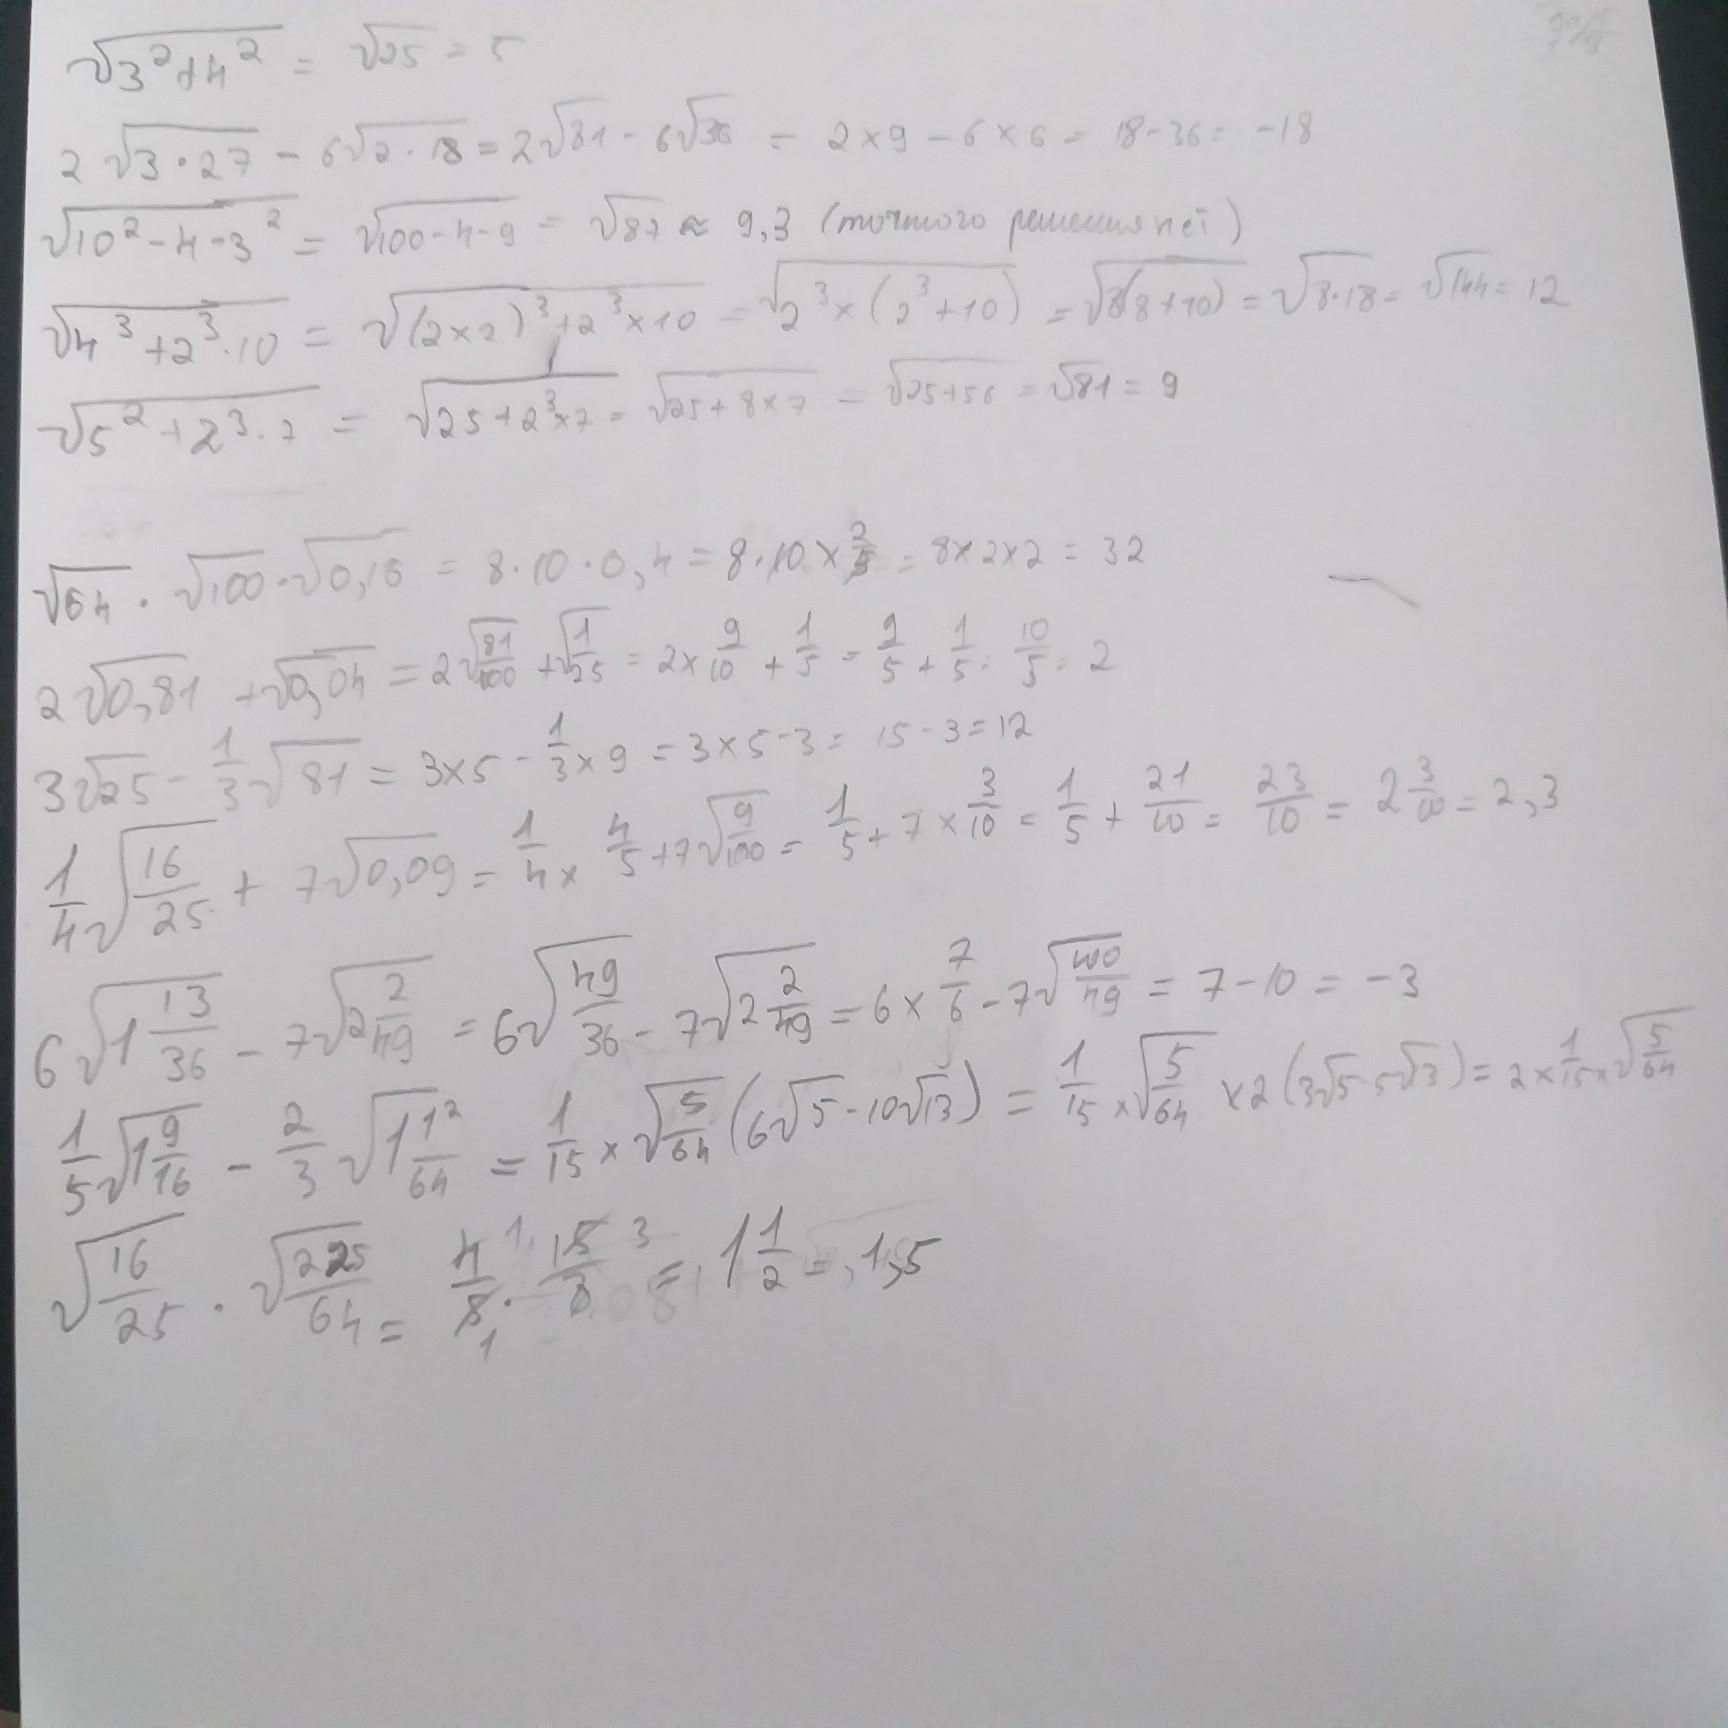 √(3²+4²) = √25 = 5
2√(3·27) - 6√(2·18) = 2√81 - 6√36 = 2×9 - 6×6 = 18-36 = -18
√(10²-4-3²) = √(100-4-9) = √87 ≈ 9,3 (точного решения нет)
√(4³+2³·10) = √((2×2)³+2³×10) = √(2³×(2³+10)) = √(8(8+10)) = √(8·18) = √144 = 12
√(5²+2³·7) = √(25+2³×7) = √(25+8×7) = √(25+56) = √81 = 9
√64 · √100 · √0,16 = 8·10·0,4 = 8·10×2/5 = 8×2×2 = 32
2√0,81 + √0,04 = 2√(81/100) + √(1/25) = 2×9/10 + 1/5 = 9/5 + 1/5 = 10/5 = 2
3√25 - 1/3√81 = 3×5 - 1/3×9 = 3×5-3 = 15-3 = 12
1/4√(16/25) + 7√0,09 = 1/4 × 4/5 + 7√(9/100) = 1/5 + 7×3/10 = 1/5 + 21/10 = 23/10 = 2 3/10 = 2,3
6√(1 13/36) - 7√(2 2/49) = 6√(49/36) - 7√(2 2/49) = 6×7/6 - 7√(100/49) = 7-10 = -3
1/5√(1 9/16) - 2/3√(1 1²/64) = 1/15 × √(5/64) (6√5-10√13) = 1/15 × √(5/64) ×2(3√5-5√3) = 2×1/15×√(5/64)
√(16/25) · √(225/64) = 4/8 1 1 · 15/8 3 = 1 1/2 = 1,5